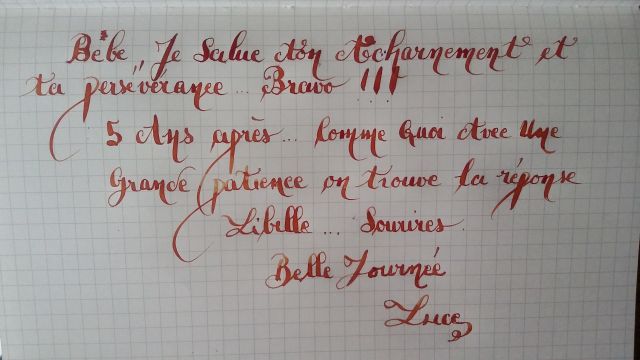 Bébe, Je Salue ton Acharnement et
ta persévérance... Bravo !!!
5 Ans après... Comme Quoi Avec Une
Grande patience on trouve la réponse
Libelle... Sourires.
Belle Journée
Luce